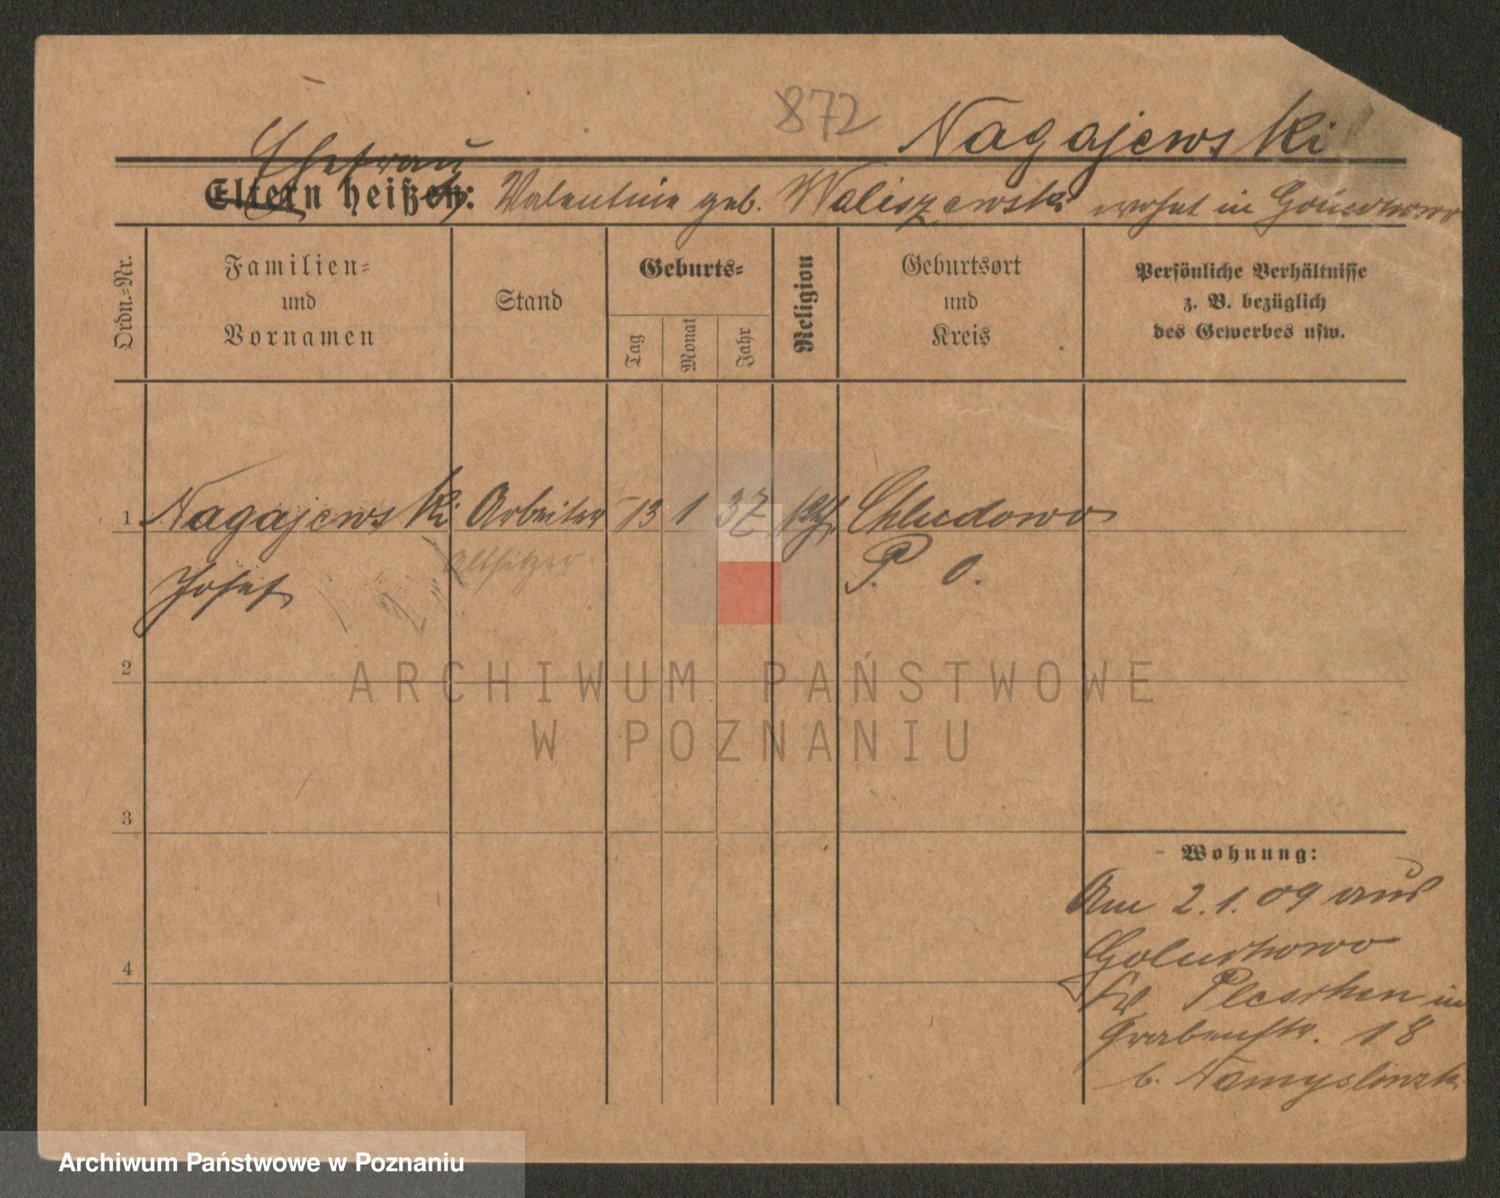 872
Nagajewski
Ehefrau
Eltern heißen: Valentine geb. Waliszewska wohnt in
Ordn.-Nr.
Familien-
und
Vornamen
Stand
Geburts-
Tag
Monat
Jahr
Religion
Geburtsort
und
Kreis
Persönliche Verhältnisse
z. B. bezüglich
des Gewerbes usw.
1 Nagajewski Arbeiter 13 1 37 kth Chludowo
Altsitzer
Josef
P. O.
2
ARCHIWUM PAŃSTWOWE
W POZNANIU
3
Wohnung:
Am 2.1.09 aus
Goluchowo
Kr Pleschen in
4
Grabenstr. 18
b. Namyslinsk
Archiwum Państwowe w Poznaniu